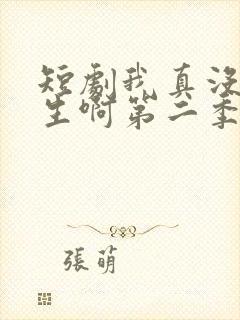 短劇我真沒
生啊第二季
張萌